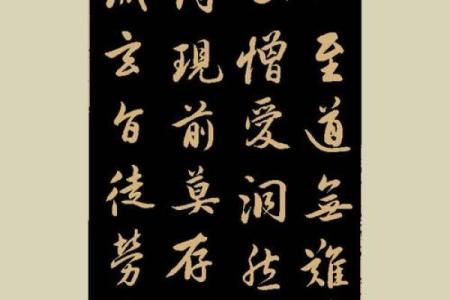 至道無難
憎愛洞然
得現前莫存
玄旨徒勞